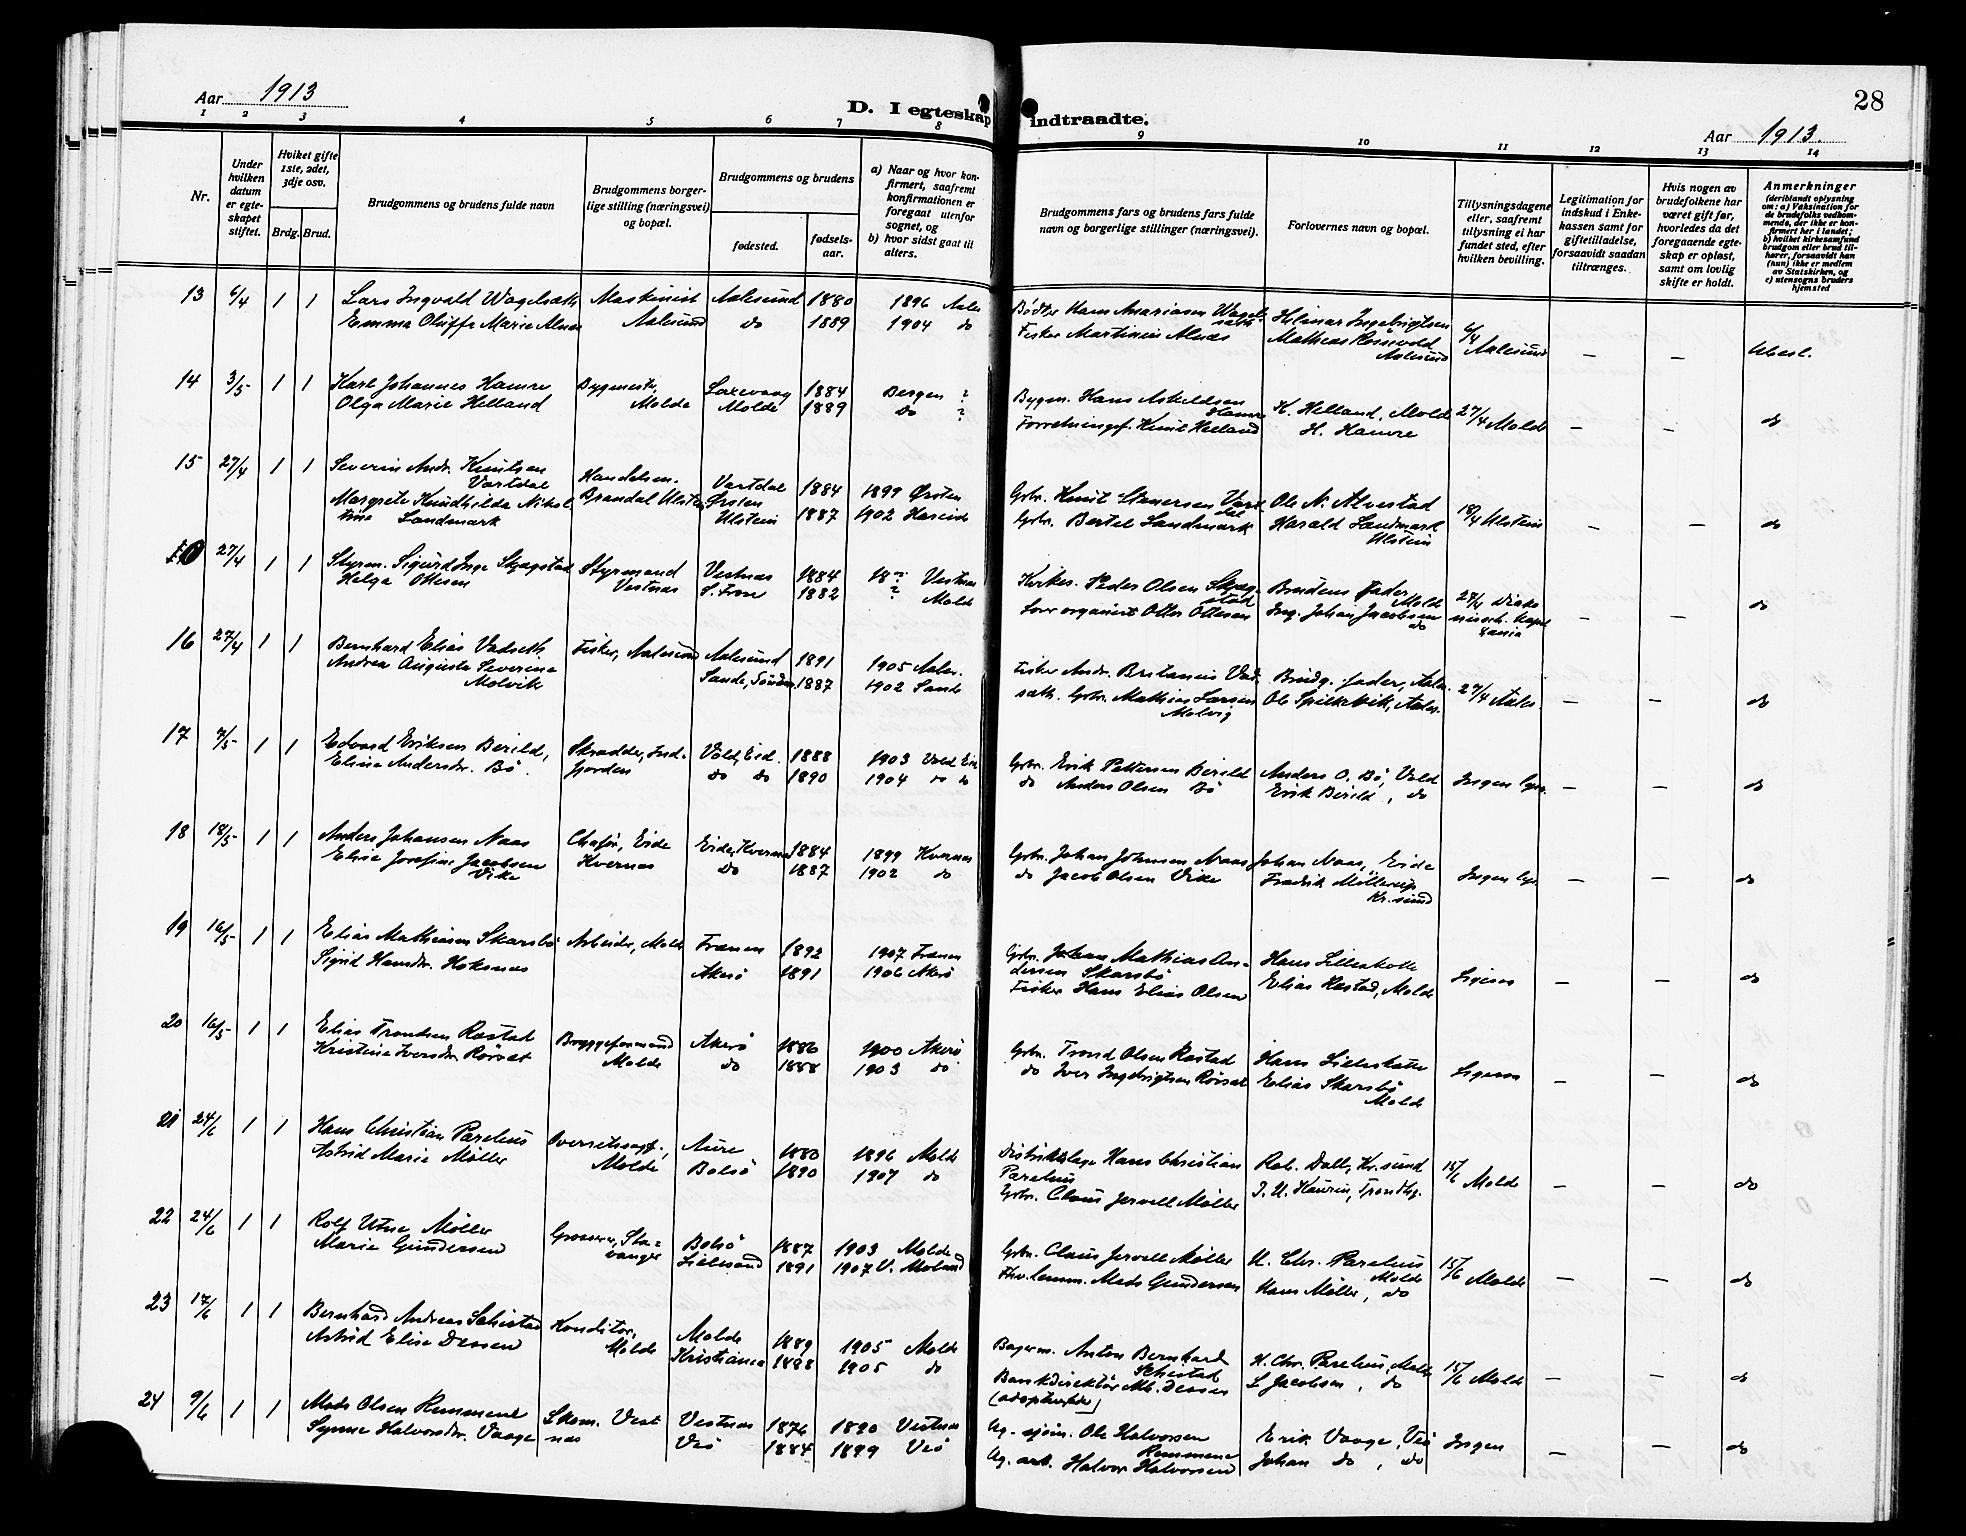 Aar 1913
D. I egteskap indtraadte.
28
Aar 1913.
1 2 3 4 5 6 7 8 9 10 11 12 13 14
Nr.
Under hvilken datum er egteskapet stiftet.
Hvilket gifte 1ste, 2det, 3dje osv.
Brdg. Brud.
Brudgommens og brudens fulde navn
Brudgommens borgerlige stilling (næringsvei) og bopæl.
Brudgommens og brudens
fødested.
fødselsaar.
a) Naar og hvor konfirmert, saafremt konfirmationen er foregaat utenfor sognet, og
b) hvor sidst gaat til alters.
Brudgommens fars og brudens fars fulde navn og borgerlige stillinger (næringsvei).
Forlovernes navn og bopæl.
Tillysningsdagene eller, saafremt tillysning ei har fundet sted, efter hvilken bevilling.
Legitimation for indskud i Enkekassen samt for giftetilladelse, forsaavidt saadan tiltrænges.
Hvis nogen av brudefolkene har været gift før, hvorledes da det foregaaende egteskap er opløst, samt om lovlig skifte er holdt.
Anmerkninger (deriblandt oplysning om: a) Vaksination for de brudefolks vedkommende, der ikke er konfirmert her i landet; b) hvilket kirkesamfund brudgom eller brud tilhører, forsaavidt han (hun) ikke er medlem av Statskirken, og c) utensogns bruders hjemsted
13 6/4 1 1 Lars Ingvald Vagelsæth Maskinist Aalesund 1880 1896 Aales
Emma Oluffa Marie Alnes Aalesund do 1889 1904 do
Fisker Martinus Alnæs Hilmar Ingebrigtsen Mathias Røssevold Aalesund 6/4 Aalesund — —
14 3/5 1 1 Karl Johannes Hamre Bygmester, Laxevaag 1884 Bergen ?
Olga Marie Helland Molde Molde 1889 do ?
Bygm. Hans Askeldsen Hamre K. Helland, Molde 27/4 Molde — — do
Forretningsf. Knut Helland H. Hamre
15 27/4 1 1 Severin Andr. Knutsen Vartdal Handelsm. Vartdal Ørsten 1884 1899 Ørsten
Margrete Knudhilda Nikoltine Landmark Brandal Ulstein Ulstein 1887 1902 Hareide
Gbr. Knut Vartdal Ole N. Alvestad 18/4 Ulstein — — do
Gbr. Bertel Landmark Harald Landmark Ulstein
27/4 1 1 Styrm. Sigurd Inge Skjegstad Styrmand Vestnes 1884 18 ? Vestnes
Helga Ottesen Vestnæs S. Fron 1882 ? Molde
Kirkes. Peder Olsen Skjegstad Brudens fader, Molde 27/4 — — do
organist Otter Ottesen Ing. Johan Jacobsen do
16 27/4 1 1 Bernhard Elias Vadseth Fisker, Aalesund Aalesund 1891 1905 Aales.
Andrea Augusta Severine Molvik Sande, Søndm. 1887 1902 Sande
Fisker Andr. Vadsæth. Gbr. Mathias Larsen Molvig Brudg. fader, Aales. 27/4 Aales. — — do
Ole Spilkevik, Aales.
17 7/5 1 1 Edvard Eriksen Berild, Skrædder, Indfjorden Vold, Eid. 1888 1903 Vold Eid
Eline Andersdr. Bø. do do 1890 1904 do do
Gbr. Erik Pettersen Berild Anders O. Bø, Vold Ingen lysn. — — do
do Anders Olsen Bø Erik Berild, do
18 18/5 1 1 Anders Johansen Naas Chafør, Eide Eide, Kvernes 1884 1899 Kvernes
Elise Josefine Jacobsen Vike Kvernes do 1887 1902 do
Gbr. Johan Johnsen Naas Johan Naas, Eide Ingen lys. — — do
do Jacob Olsen Vike Fredrik Møllerup Kr.sund
19 16/5 1 1 Elias Mathiasen Skarsbø Arbeider, Molde Frænen 1892 1907 Frænen
Sigrid Hansdr. Hoksnes Akerø 1891 1906 Akerø
Gbr. Johan Mathias Andersen Skarsbø Hans Lilleskotte — — do
Fisker Hans Elias Olsen Elias Røstad, Molde
20 16/5 1 1 Elias Trondsen Røstad Bryggeformand Akerø 1886 1900 Akerø
Kristine Iversdr. Rørset Molde do 1888 1903 do
Gbr. Trond Olsen Røstad Hans Lilleskotte — — do
do Iver Ingebrigtsen Rørset Elias Skarsbø Molde
21 24/6 1 1 Hans Christian Parelius Overretssagf., Aure 1880 1896 Molde
Astrid Marie Møller Molde Bolsø 1890 1907 do
Distriktslæge Hans Christian Parelius Rob. Dall, Kr.sund 15/6 Molde — — do
Gbr. Claus Jervell Møller I. U. Haurin, Trondhj.
22 24/6 1 1 Rolf Utne Møller Grosserer, Stavanger Bolsø 1887 1903 Molde
Marie Gundersen Lillesand 1891 1907 V. Moland
Gbr. Claus Jervell Møller H. Chr. Parelius Molde 15/6 Molde — — do
Mads Gundersen Hans Møller, do
23 17/6 1 1 Bernhard Andreas Schistad Konditor, Molde 1889 1905 Molde
Astrid Elise Dessen Molde Kristiania 1888 1905 do
Bagerm. Anton Bernhard Schistad H. Chr. Parelius, Molde 15/6 Molde — — do
Bankdirektør Mb. Dessen (adoptivfar) L Jacobsen, do
24 9/6 1 1 Mads Olsen Remmene Skom. Vestnes Vestnes 1876 1890 Vestnes
Synne Halvorsdr. Vaage Veø 1884 1899 Veø
Ole Halvorsen Remmene Erik Vaage, Veø Ingen — — do
Halvor Halvorsen Johan do, do